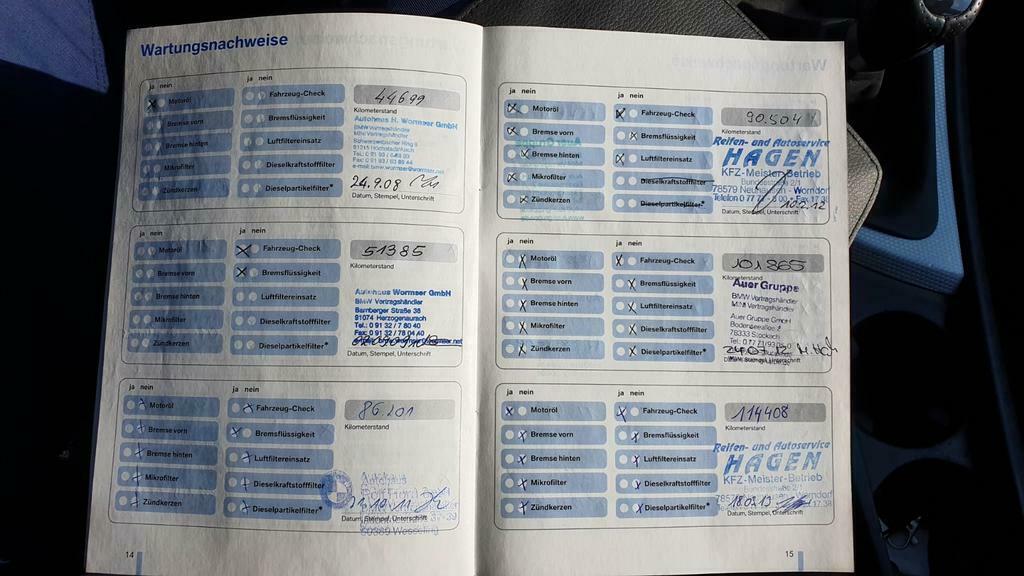 Wartungsnachweise
ja nein
ja nein
Motoröl
Fahrzeug-Check
44699
Bremse vorn
Bremsflüssigkeit
Kilometerstand
Autohaus H. Wormser GmbH
BMW Vertragshändler
MINI Vertragshändler
Bremse hinten
Luftfiltereinsatz
Mikrofilter
Dieselkraftstofffilter
Zündkerzen
Dieselpartikelfilter*
24.9.08
Datum, Stempel, Unterschrift
ja nein
ja nein
Motoröl
Fahrzeug-Check
51385
Bremse vorn
Bremsflüssigkeit
Kilometerstand
Bremse hinten
Luftfiltereinsatz
Autohaus Wormser GmbH
BMW Vertragshändler
Bamberger Straße 38
91074 Herzogenaurach
Tel.: 0 91 32 / 7 80 40
Fax: 0 91 32 / 78 04 40
Mikrofilter
Dieselkraftstofffilter
Zündkerzen
Dieselpartikelfilter*
Datum, Stempel, Unterschrift
ja nein
ja nein
Motoröl
Fahrzeug-Check
86.201
Bremse vorn
Bremsflüssigkeit
Kilometerstand
Bremse hinten
Luftfiltereinsatz
Mikrofilter
Dieselkraftstofffilter
Autohaus
Zündkerzen
Dieselpartikelfilter*
Datum, Stempel, Unterschrift
Wesseling
14
ja nein
ja nein
Motoröl
Fahrzeug-Check
90.504
Bremse vorn
Bremsflüssigkeit
Kilometerstand
Reifen- und Autoservice
HAGEN
KFZ-Meister-Betrieb
Bundesstraße 2/1
78579 Neuhausen - Worndorf
Bremse hinten
Luftfiltereinsatz
Mikrofilter
Dieselkraftstofffilter
Zündkerzen
Dieselpartikelfilter*
Datum, Stempel, Unterschrift
ja nein
ja nein
Motoröl
Fahrzeug-Check
101865
Bremse vorn
Bremsflüssigkeit
Kilometerstand
Auer Gruppe
BMW Vertragshändler
MINI Vertragshändler
Auer Gruppe GmbH
78333 Stockach
Bremse hinten
Luftfiltereinsatz
Mikrofilter
Dieselkraftstofffilter
Zündkerzen
Dieselpartikelfilter*
24.07.12
Datum, Stempel, Unterschrift
ja nein
ja nein
Motoröl
Fahrzeug-Check
114408
Bremse vorn
Bremsflüssigkeit
Kilometerstand
Reifen- und Autoservice
HAGEN
KFZ-Meister-Betrieb
Bremse hinten
Luftfiltereinsatz
Mikrofilter
Dieselkraftstofffilter
Zündkerzen
Dieselpartikelfilter*
Datum, Stempel, Unterschrift
15